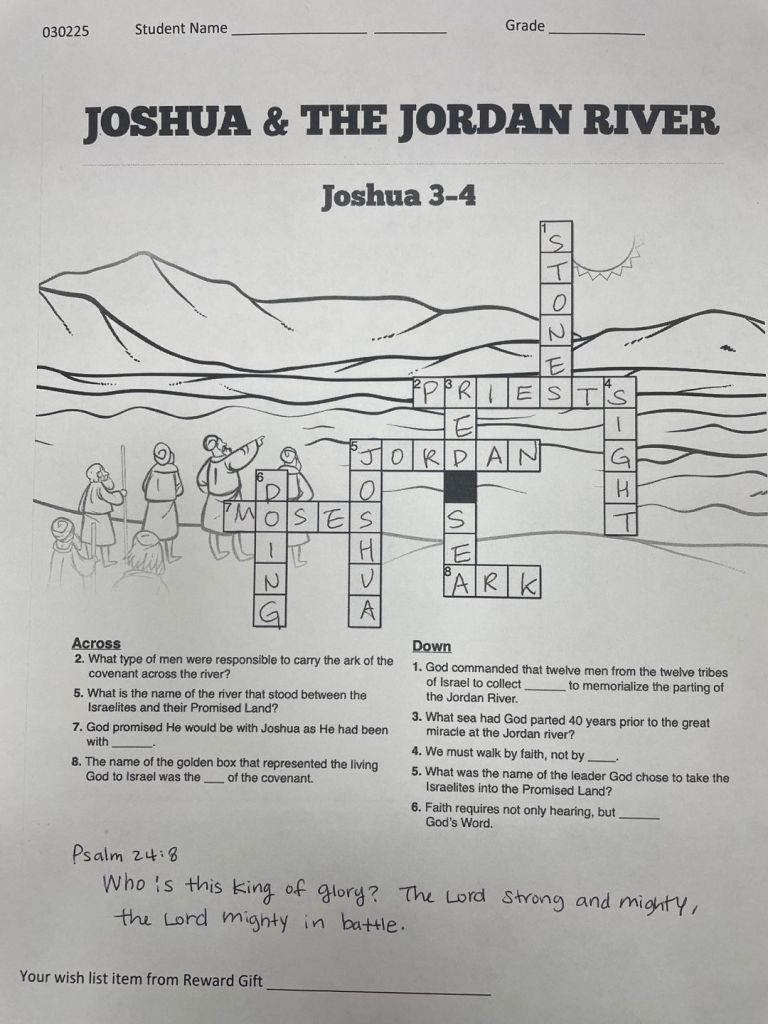 030225 Student Name ____________ ________ Grade ____________
JOSHUA & THE JORDAN RIVER
Joshua 3-4
1 S
T
O
N
E
2 P 3 R I E S T 4 S
E I
5 J O R D A N G
6 D O H
7 M O S E S S T
I H E
N U 8 A R K
G A
Across
2. What type of men were responsible to carry the ark of the
covenant across the river?
5. What is the name of the river that stood between the
Israelites and their Promised Land?
7. God promised He would be with Joshua as He had been
with ______.
8. The name of the golden box that represented the living
God to Israel was the ___ of the covenant.
Down
1. God commanded that twelve men from the twelve tribes
of Israel to collect ______ to memorialize the parting of
the Jordan River.
3. What sea had God parted 40 years prior to the great
miracle at the Jordan river?
4. We must walk by faith, not by ____.
5. What was the name of the leader God chose to take the
Israelites into the Promised Land?
6. Faith requires not only hearing, but ______
God's Word.
Psalm 24:8
Who is this king of glory? The Lord strong and mighty,
the Lord mighty in battle.
Your wish list item from Reward Gift ____________________